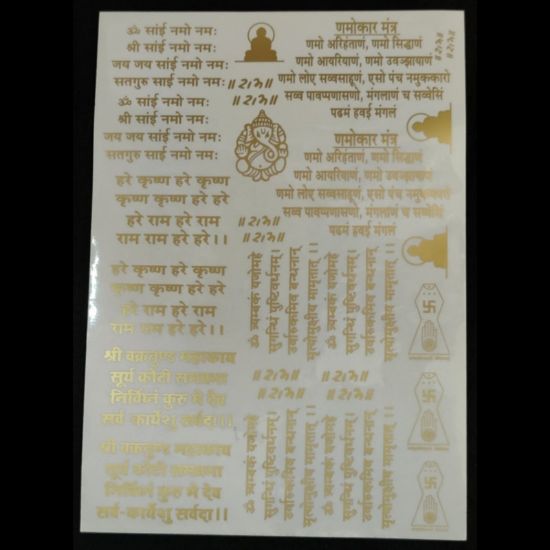 ॐ सांई नमो नमः
श्री सांई नमो नमः
जय जय सांई नमो नमः
सतगुरु सांई नमो नमः
ॐ सांई नमो नमः
श्री सांई नमो नमः
जय जय सांई नमो नमः
सतगुरु सांई नमो नमः
हरे कृष्ण हरे कृष्ण
कृष्ण कृष्ण हरे हरे
हरे राम हरे राम
राम राम हरे हरे।।
हरे कृष्ण हरे कृष्ण
कृष्ण कृष्ण हरे हरे
हरे राम हरे राम
राम राम हरे हरे।।
श्री वक्रतुण्ड महाकाय
सूर्य कोटी समप्रभा
निर्विघ्नं कुरु मे देव
सर्व-कार्येशु सर्वदा।।
श्री वक्रतुण्ड महाकाय
सूर्य कोटी समप्रभा
निर्विघ्नं कुरु मे देव
सर्व-कार्येशु सर्वदा।।
णमोकार मंत्र
णमो अरिहंताणं, णमो सिद्धाणं
णमो आयरियाणं, णमो उवज्झायाणं
णमो लोए सव्वसाहूणं, एसो पंच नमुक्कारो
सव्व पावप्पणासणो, मंगलाणं च सव्वेसिं
पढमं हवई मंगलं
णमोकार मंत्र
णमो अरिहंताणं, णमो सिद्धाणं
णमो आयरियाणं, णमो उवज्झायाणं
णमो लोए सव्वसाहूणं, एसो पंच नमुक्कारो
सव्व पावप्पणासणो, मंगलाणं च सव्वेसिं
पढमं हवई मंगलं
ॐ त्र्यम्बकं यजामहे
सुगन्धिं पुष्टिवर्धनम्।
उर्वारुकमिव बन्धनान्
मृत्योर्मुक्षीय मामृतात् ।।
ॐ त्र्यम्बकं यजामहे
सुगन्धिं पुष्टिवर्धनम्।
उर्वारुकमिव बन्धनान्
मृत्योर्मुक्षीय मामृतात् ।।
ॐ त्र्यम्बकं यजामहे
सुगन्धिं पुष्टिवर्धनम्।
उर्वारुकमिव बन्धनान्
मृत्योर्मुक्षीय मामृतात् ।।
ॐ त्र्यम्बकं यजामहे
सुगन्धिं पुष्टिवर्धनम्।
उर्वारुकमिव बन्धनान्
मृत्योर्मुक्षीय मामृतात् ।।